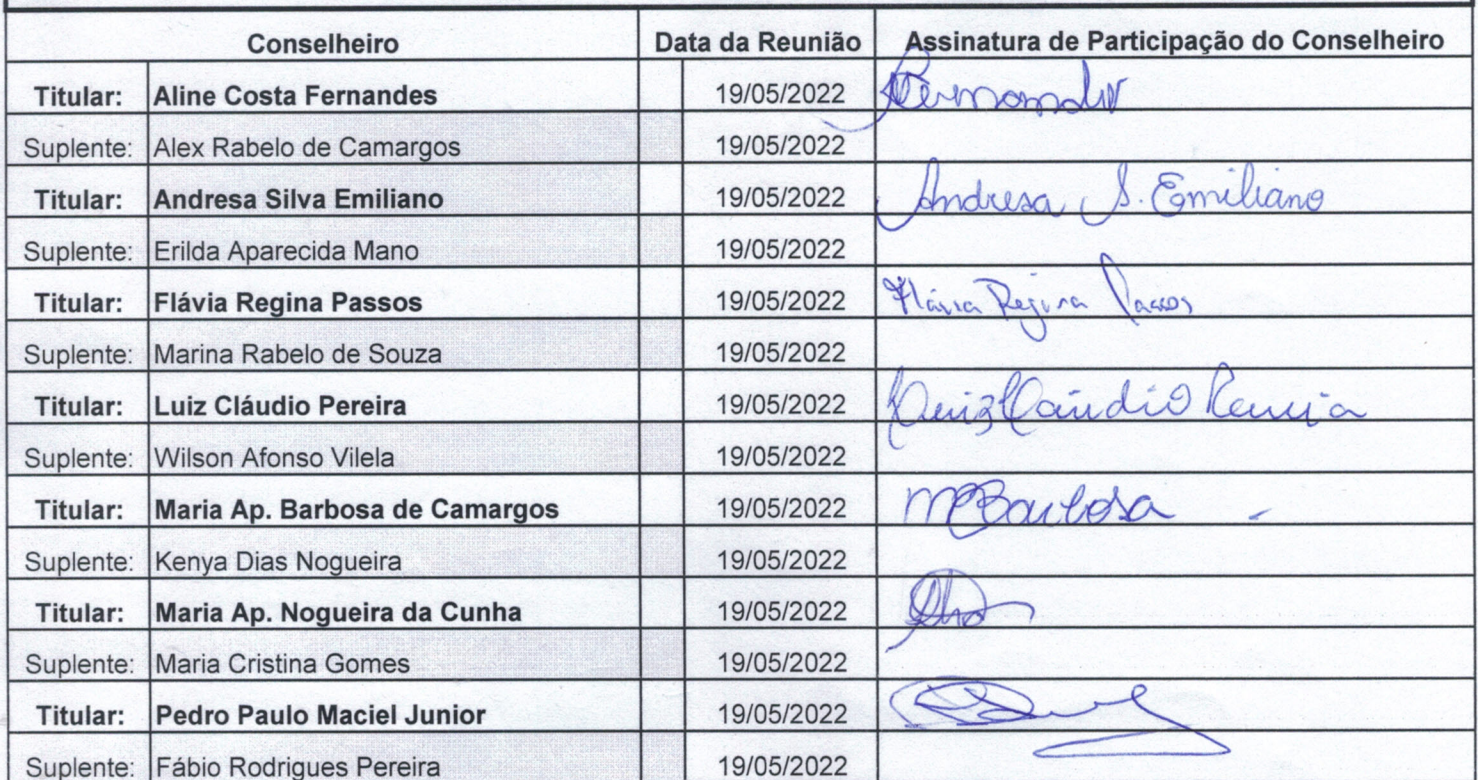 Conselheiro Data da Reunião Assinatura de Participação do Conselheiro
Titular: Aline Costa Fernandes 19/05/2022
Suplente: Alex Rabelo de Camargos 19/05/2022
Titular: Andresa Silva Emiliano 19/05/2022 Andresa S. Emiliano
Suplente: Erilda Aparecida Mano 19/05/2022
Titular: Flávia Regina Passos 19/05/2022 Flávia Regina Passos
Suplente: Marina Rabelo de Souza 19/05/2022
Titular: Luiz Cláudio Pereira 19/05/2022 Luiz Cláudio Pereira
Suplente: Wilson Afonso Vilela 19/05/2022
Titular: Maria Ap. Barbosa de Camargos 19/05/2022 MBarbosa
Suplente: Kenya Dias Nogueira 19/05/2022
Titular: Maria Ap. Nogueira da Cunha 19/05/2022
Suplente: Maria Cristina Gomes 19/05/2022
Titular: Pedro Paulo Maciel Junior 19/05/2022
Suplente: Fábio Rodrigues Pereira 19/05/2022